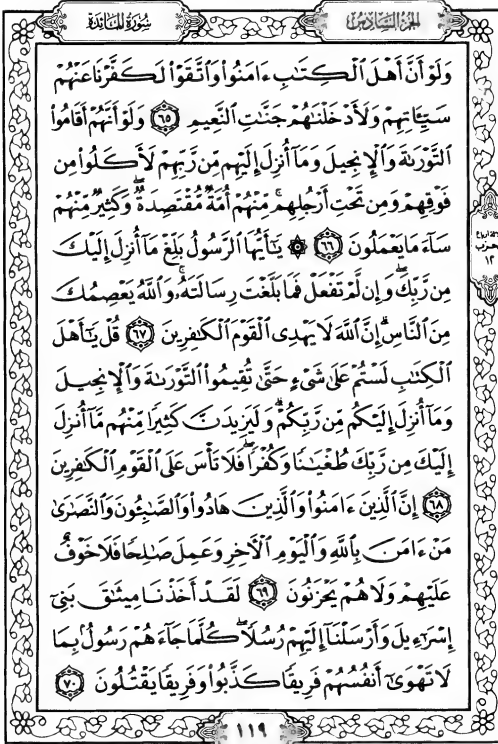 سُورَةُ المَائدَة
الجزء السادس
وَلَوْ أَنَّ أَهْلَ ٱلْكِتَٰبِ ءَامَنُوا۟ وَٱتَّقَوْا۟ لَكَفَّرْنَا عَنْهُمْ
سَيِّـَٔاتِهِمْ وَلَأَدْخَلْنَٰهُمْ جَنَّٰتِ ٱلنَّعِيمِ ٦٥ وَلَوْ أَنَّهُمْ أَقَامُوا۟
ٱلتَّوْرَىٰةَ وَٱلْإِنجِيلَ وَمَآ أُنزِلَ إِلَيْهِم مِّن رَّبِّهِمْ لَأَكَلُوا۟ مِن
فَوْقِهِمْ وَمِن تَحْتِ أَرْجُلِهِم ۚ مِّنْهُمْ أُمَّةٌ مُّقْتَصِدَةٌ ۖ وَكَثِيرٌ مِّنْهُمْ
سَآءَ مَا يَعْمَلُونَ ٦٦ ۞ يَٰٓأَيُّهَا ٱلرَّسُولُ بَلِّغْ مَآ أُنزِلَ إِلَيْكَ
مِن رَّبِّكَ ۖ وَإِن لَّمْ تَفْعَلْ فَمَا بَلَّغْتَ رِسَالَتَهُۥ ۚ وَٱللَّهُ يَعْصِمُكَ
مِنَ ٱلنَّاسِ ۗ إِنَّ ٱللَّهَ لَا يَهْدِى ٱلْقَوْمَ ٱلْكَٰفِرِينَ ٦٧ قُلْ يَٰٓأَهْلَ
ٱلْكِتَٰبِ لَسْتُمْ عَلَىٰ شَىْءٍ حَتَّىٰ تُقِيمُوا۟ ٱلتَّوْرَىٰةَ وَٱلْإِنجِيلَ
وَمَآ أُنزِلَ إِلَيْكُم مِّن رَّبِّكُمْ ۗ وَلَيَزِيدَنَّ كَثِيرًا مِّنْهُم مَّآ أُنزِلَ
إِلَيْكَ مِن رَّبِّكَ طُغْيَٰنًا وَكُفْرًا ۖ فَلَا تَأْسَ عَلَى ٱلْقَوْمِ ٱلْكَٰفِرِينَ
٦٨ إِنَّ ٱلَّذِينَ ءَامَنُوا۟ وَٱلَّذِينَ هَادُوا۟ وَٱلصَّٰبِـُٔونَ وَٱلنَّصَٰرَىٰ
مَنْ ءَامَنَ بِٱللَّهِ وَٱلْيَوْمِ ٱلْءَاخِرِ وَعَمِلَ صَٰلِحًا فَلَا خَوْفٌ
عَلَيْهِمْ وَلَا هُمْ يَحْزَنُونَ ٦٩ لَقَدْ أَخَذْنَا مِيثَٰقَ بَنِىٓ
إِسْرَٰٓءِيلَ وَأَرْسَلْنَآ إِلَيْهِمْ رُسُلًا ۖ كُلَّمَا جَآءَهُمْ رَسُولٌۢ بِمَا
لَا تَهْوَىٰٓ أَنفُسُهُمْ فَرِيقًا كَذَّبُوا۟ وَفَرِيقًا يَقْتُلُونَ ٧٠
١١٩